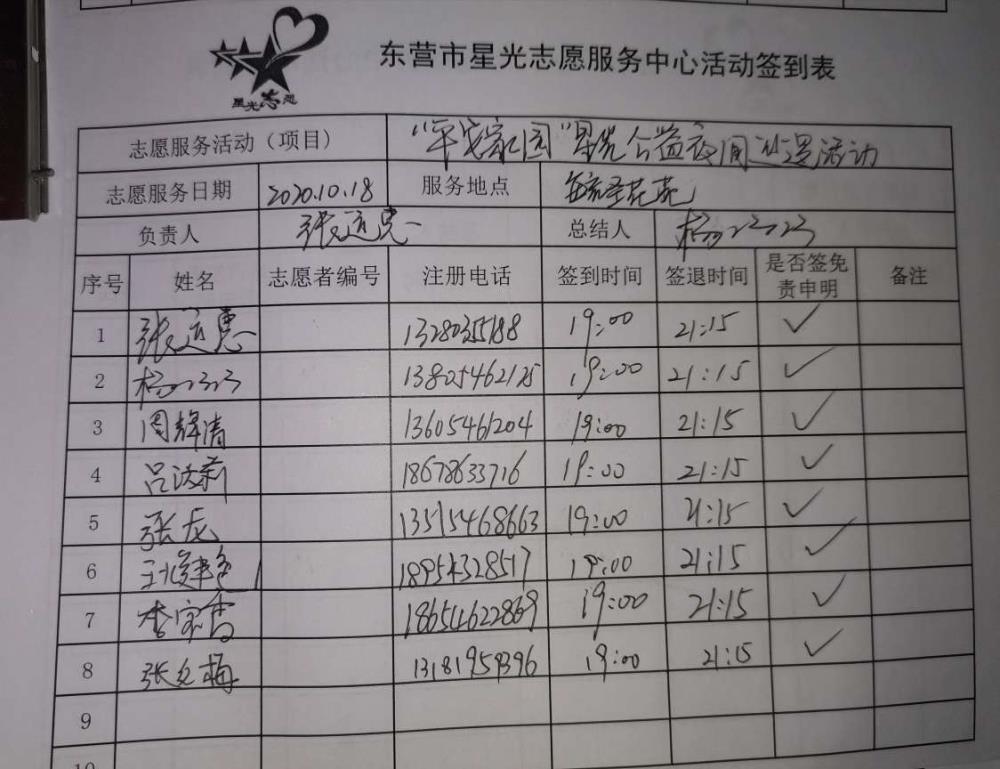 星光志愿
东营市星光志愿服务中心活动签到表
志愿服务活动（项目） “平安家园”星光公益夜间巡逻活动
志愿服务日期 2020.10.18 服务地点
负责人 张道惠 总结人 杨
序号 姓名 志愿者编号 注册电话 签到时间 签退时间 是否签免责申明 备注
1 张道惠 19:00 21:15 ✓
2 杨 13805462125 19:00 21:15 ✓
3 周辉清 13605461204 19:00 21:15 ✓
4 吕 18678633716 19:00 21:15 ✓
5 张龙 13515468663 19:00 21:15 ✓
6 18954328517 19:00 21:15 ✓
7 李家香 18654622869 19:00 21:15 ✓
8 张文梅 19:00 21:15 ✓
9
10